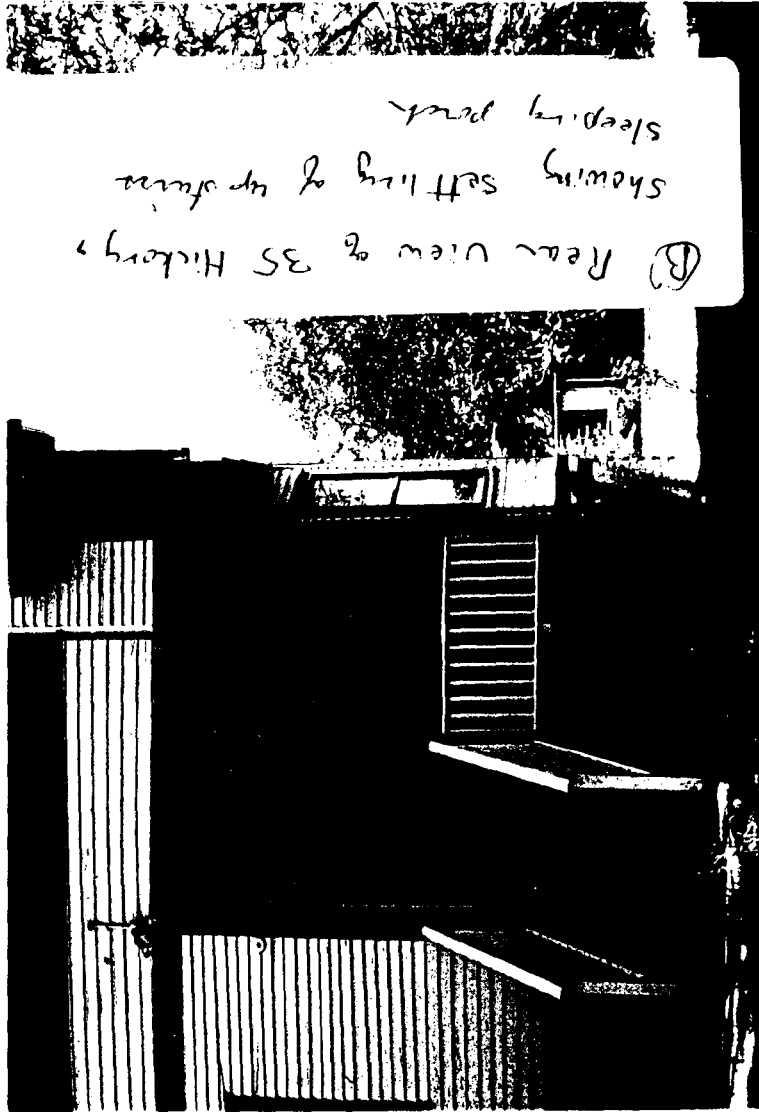 (B) Rear View of 35 Hickory,
showing settling of upstairs
sleeping porch